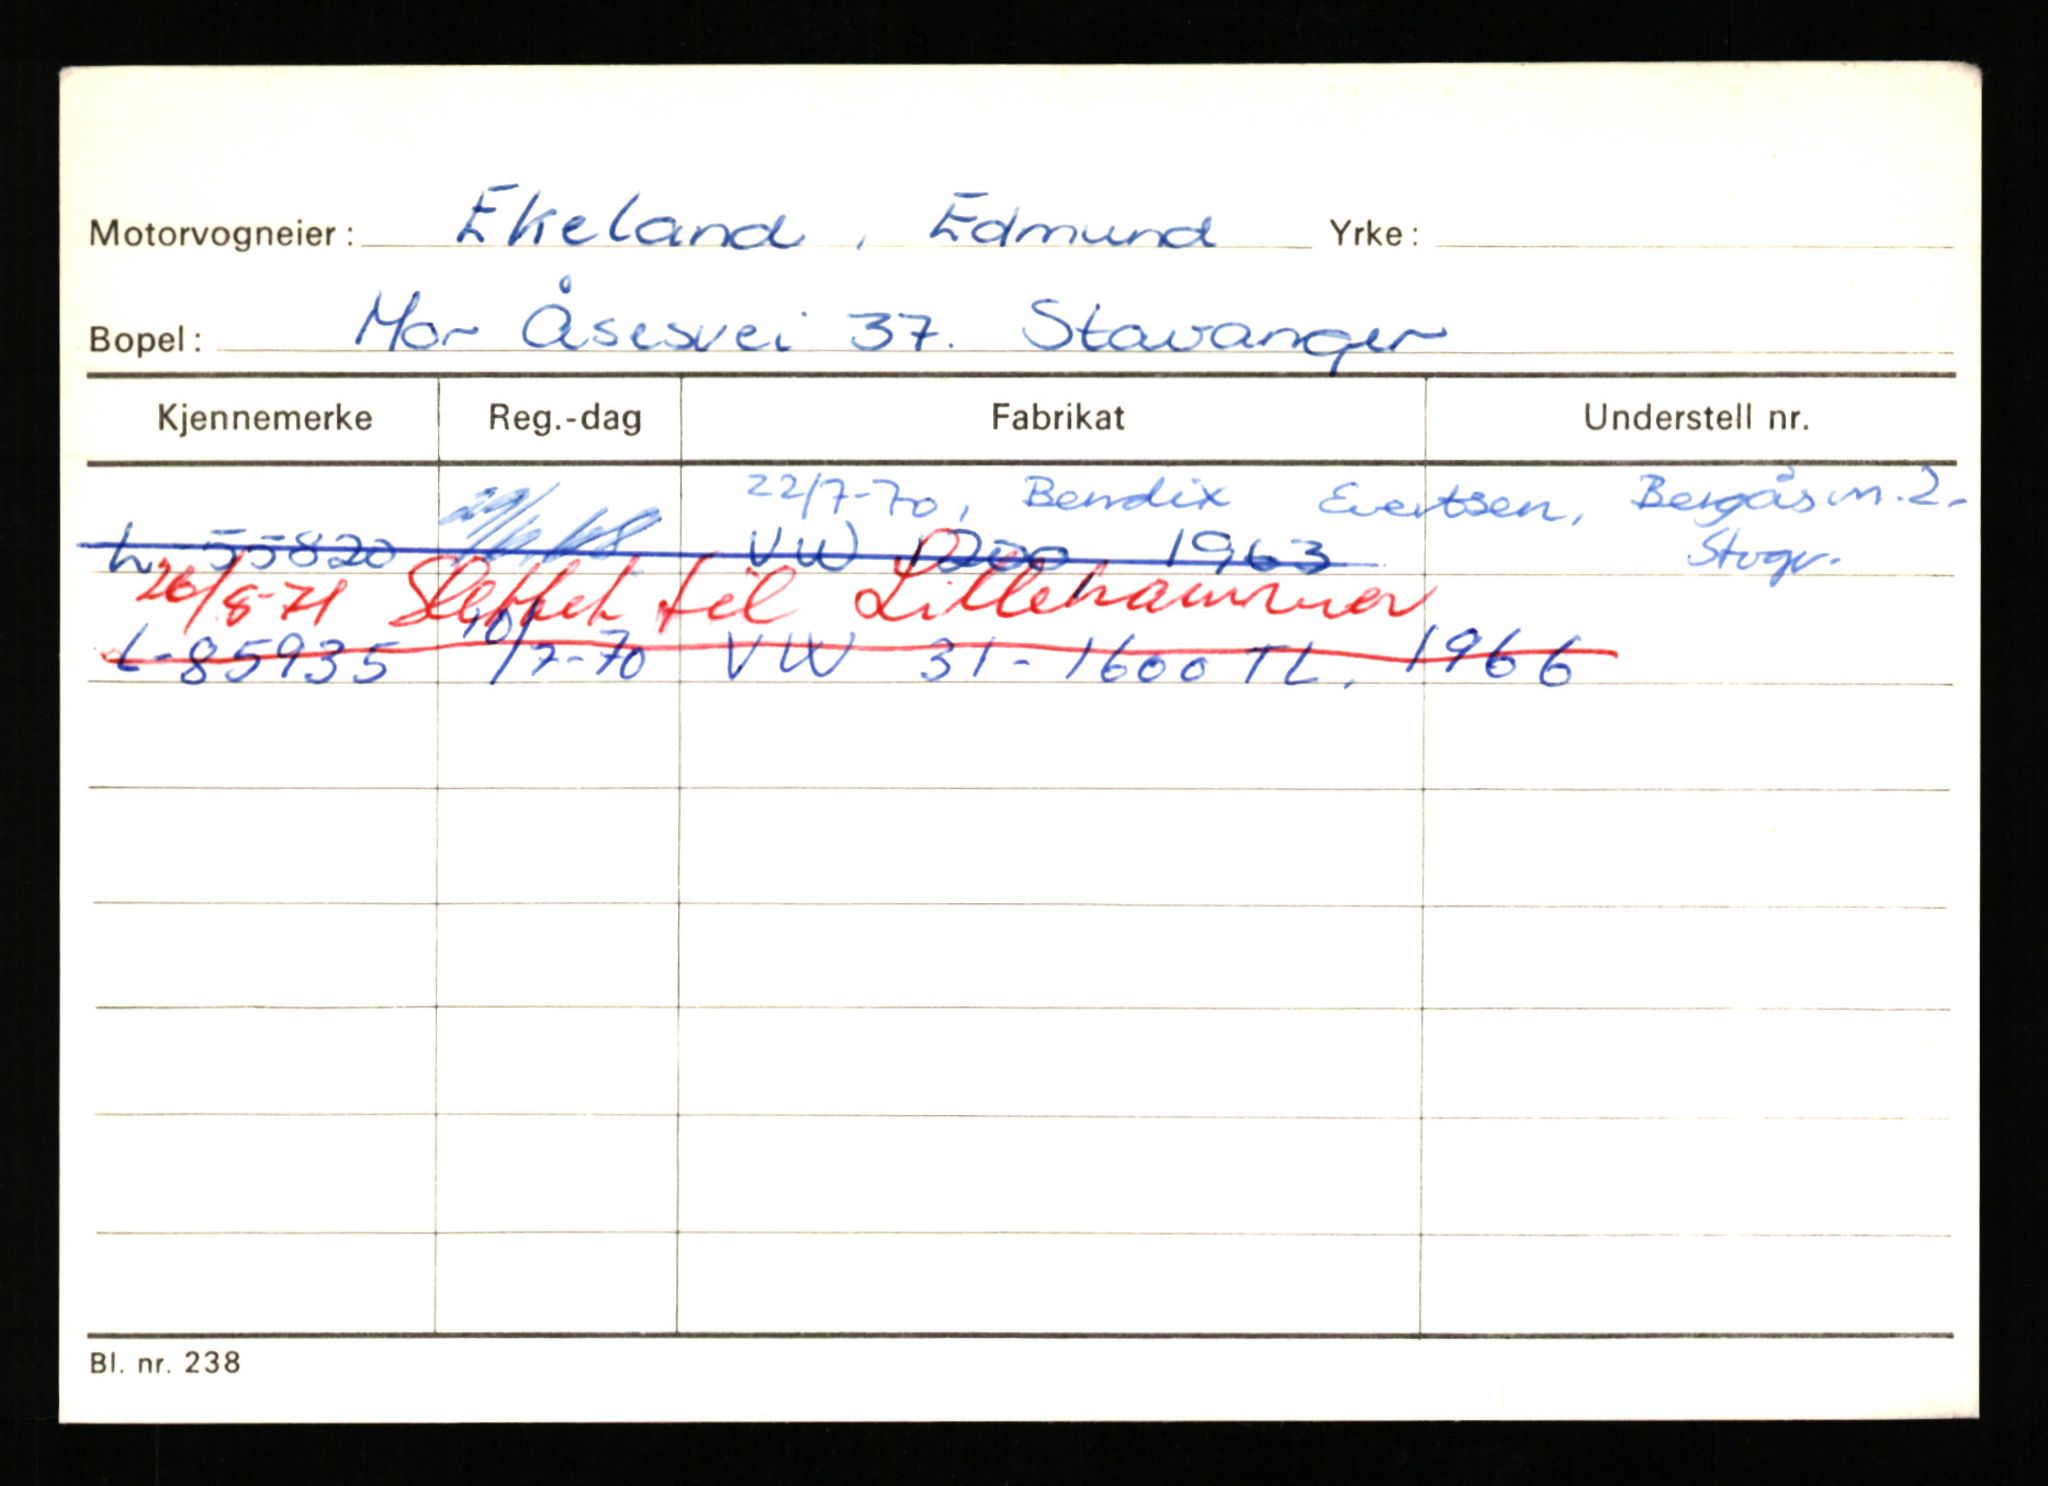 Motorvogneier: Ekeland, Edmund Yrke:
Bopel: Mor Åsesvei 37. Stavanger
Kjennemerke Reg.-dag Fabrikat Understell nr.
22/7-70, Bendix Evertsen, Bergåsm. 2.
L 55820 VW 1200 1963 Stvgr.
26/8-71 Slettet til Lillehammer
L-85935 10/7-70 VW 31-1600 TL. 1966
Bl. nr. 238